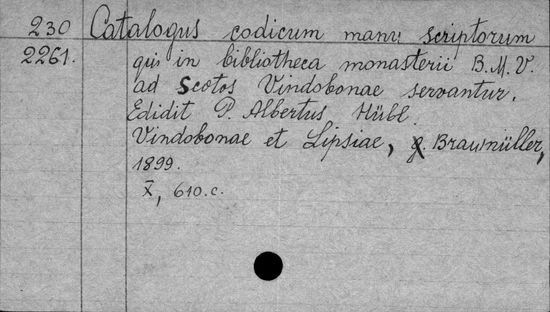 230 Catalogus codicum manu scriptorum
2261. qui in bibliotheca monasterii B.M.V.
ad Scotos Vindobonae servantur.
Edidit P. Albertus Hübl.
Vindobonae et Lipsiae, Braumüller,
1899.
X, 610.c.